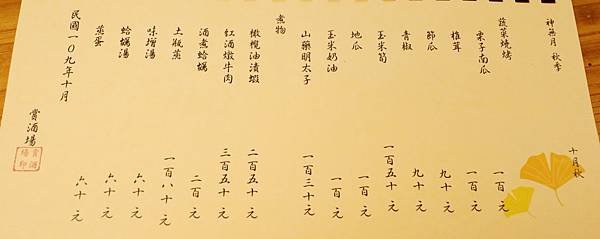 神無月 秋季 十月秋
蔬菜燒烤
栗子南瓜 一百元
椎茸 一百元
節瓜 九十元
青椒 九十元
玉米筍 一百五十元
地瓜 一百元
玉米奶油 一百元
山藥明太子 一百三十元
煮物
橄欖油漬蝦 二百五十元
紅酒燉牛肉 三百五十元
酒煮蛤蠣 二百元
土瓶蒸 一百八十元
味增湯 六十元
蛤蠣湯 六十元
蒸蛋 六十元
民國一0九年十月
賞酒場
賞酒場印